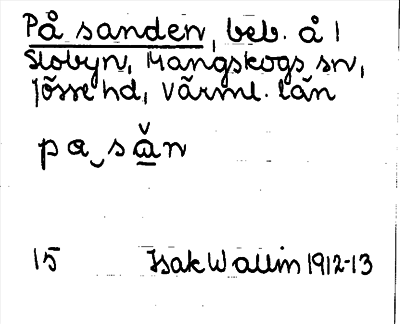 På sanden, beb. å 1
Slobyn, Mangskogs sn,
Jösse hd, Värml. län
pa‿sǎ̱n
15 Isak Wallin 1912-13